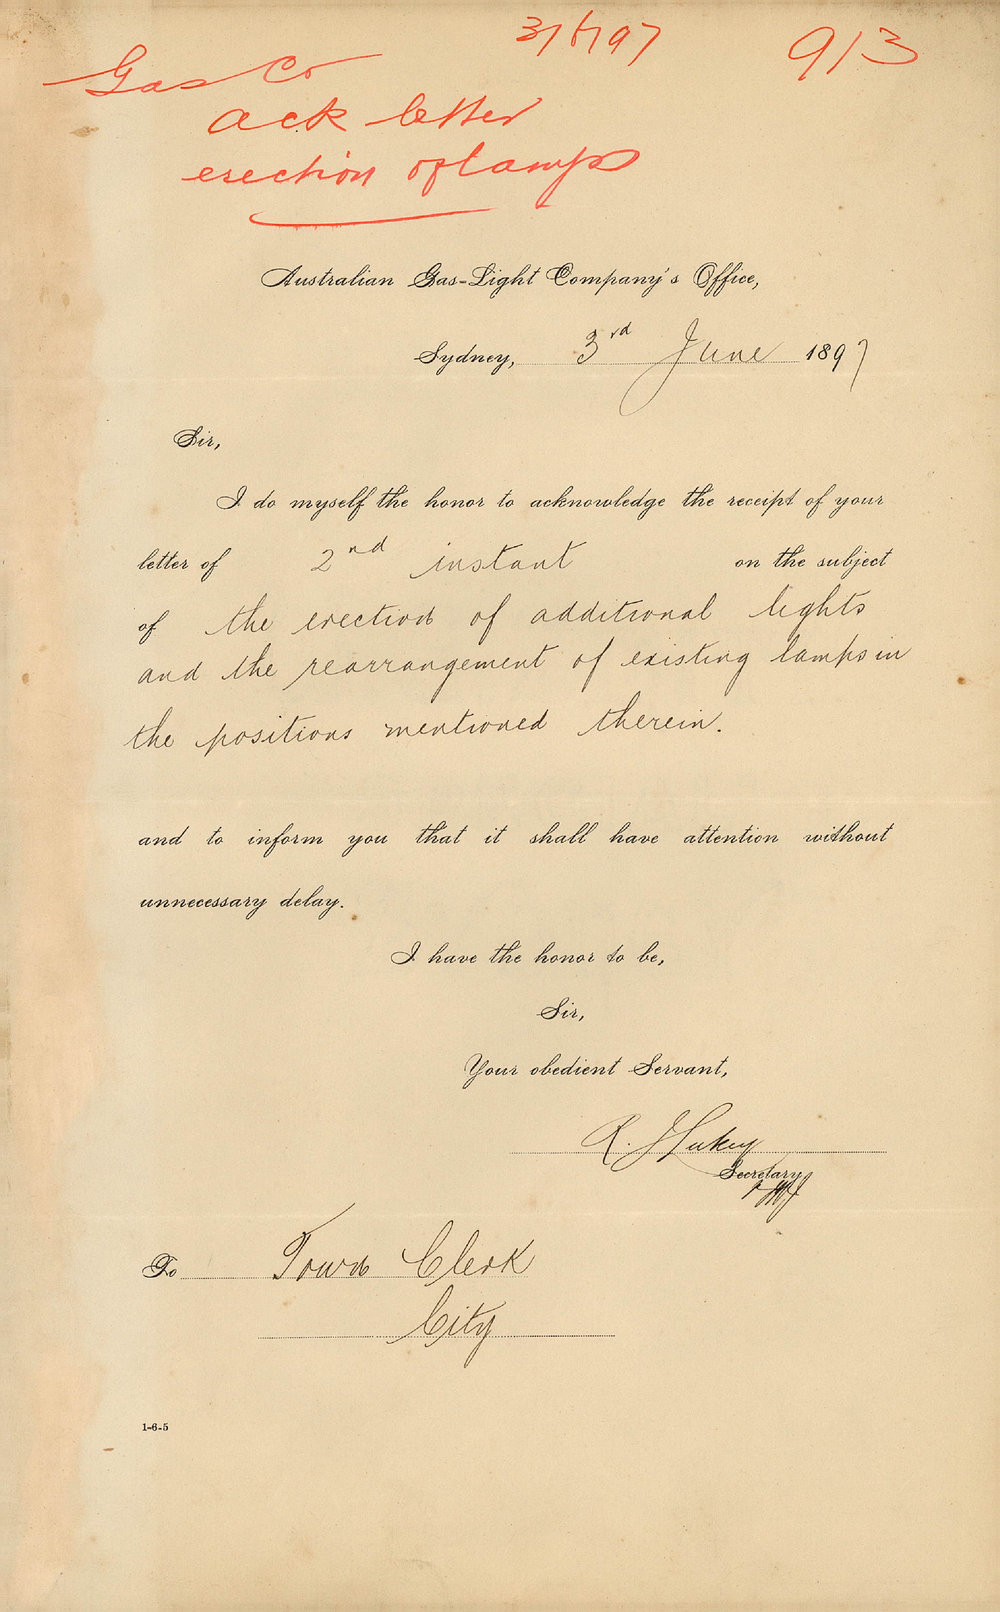 3/6/97 913
Gas Co
ack letter
erection of lamps
Australian Gas-Light Company's Office,
Sydney, 3rd June 1897
Sir,
I do myself the honor to acknowledge the receipt of your
letter of 2nd instant on the subject
of the erection of additional lights
and the rearrangement of existing lamps in
the positions mentioned therein.
and to inform you that it shall have attention without
unnecessary delay.
I have the honor to be,
Sir,
Your obedient Servant,
R. J Lukey
Secretary
To Town Clerk
City
1-6-5